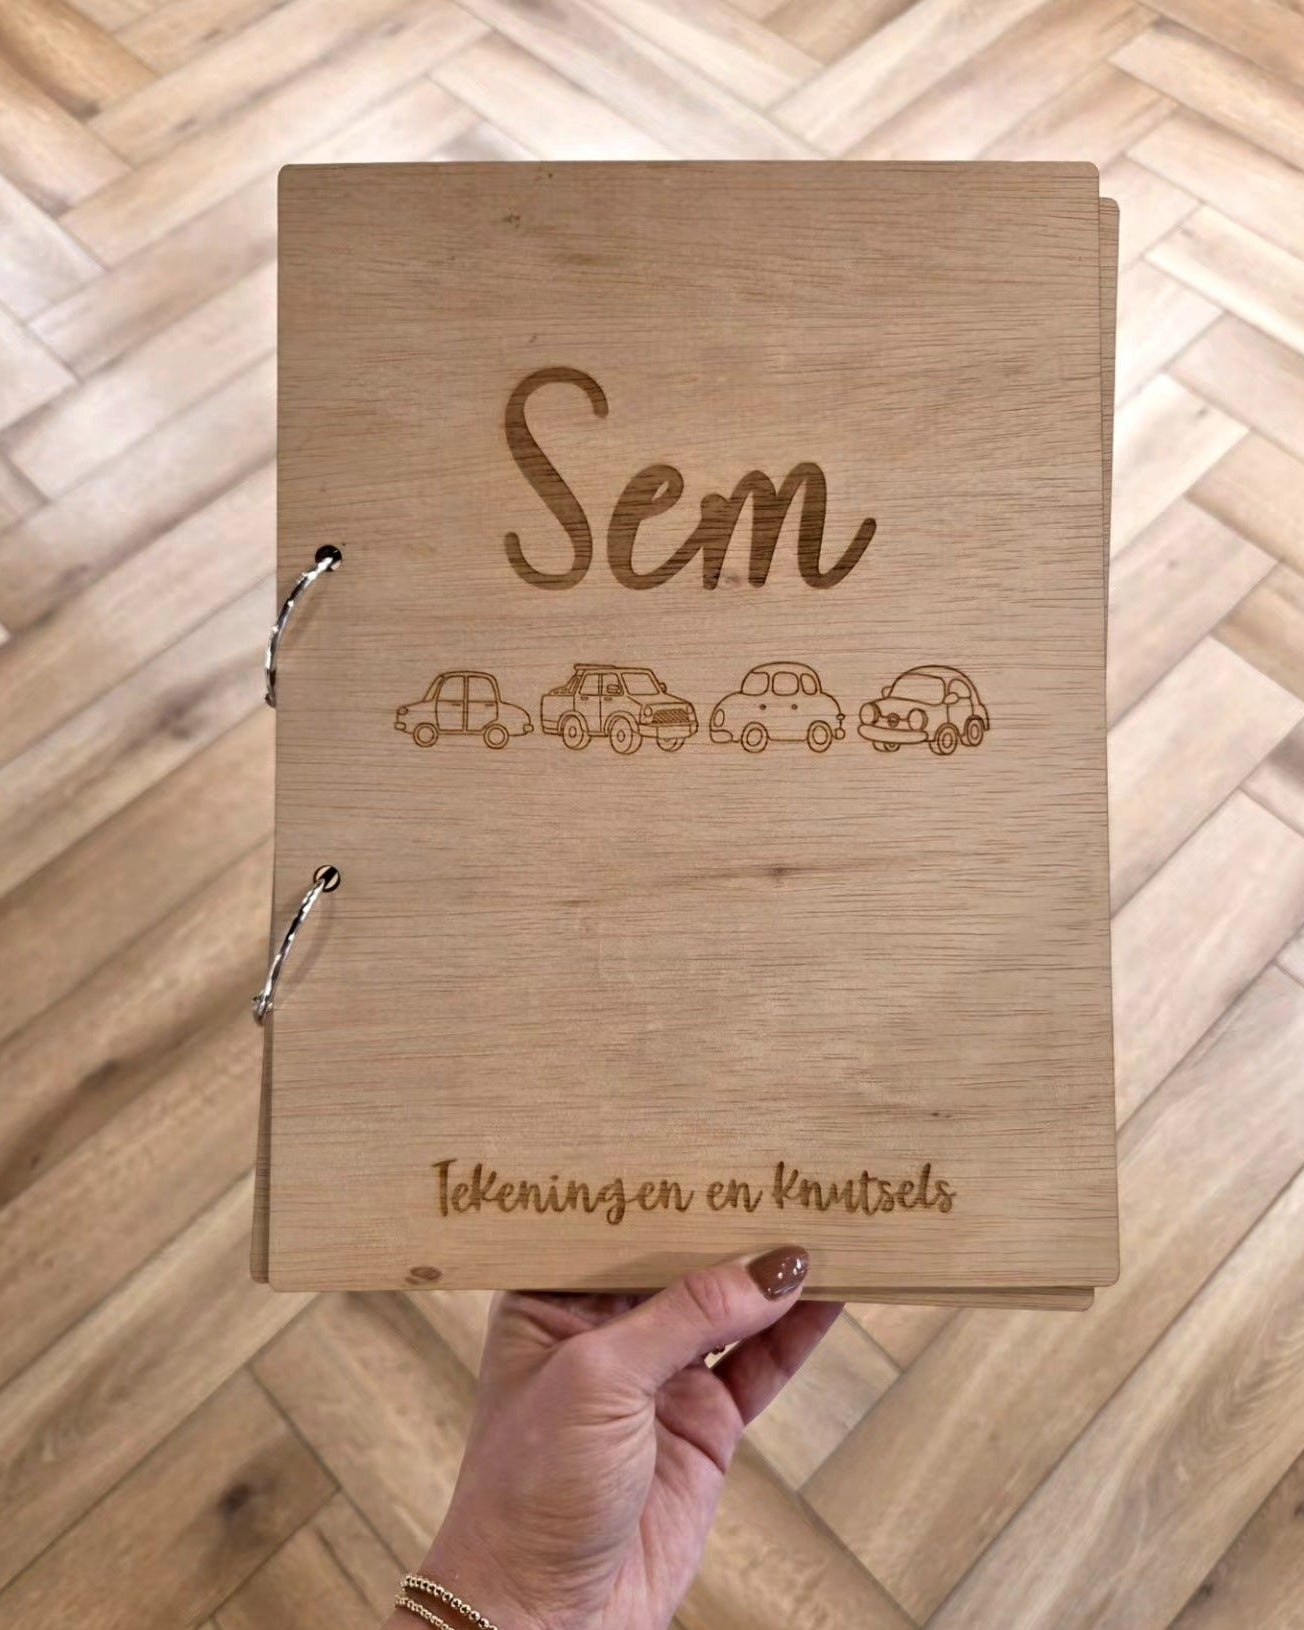 Sem
Tekeningen en Knutsels